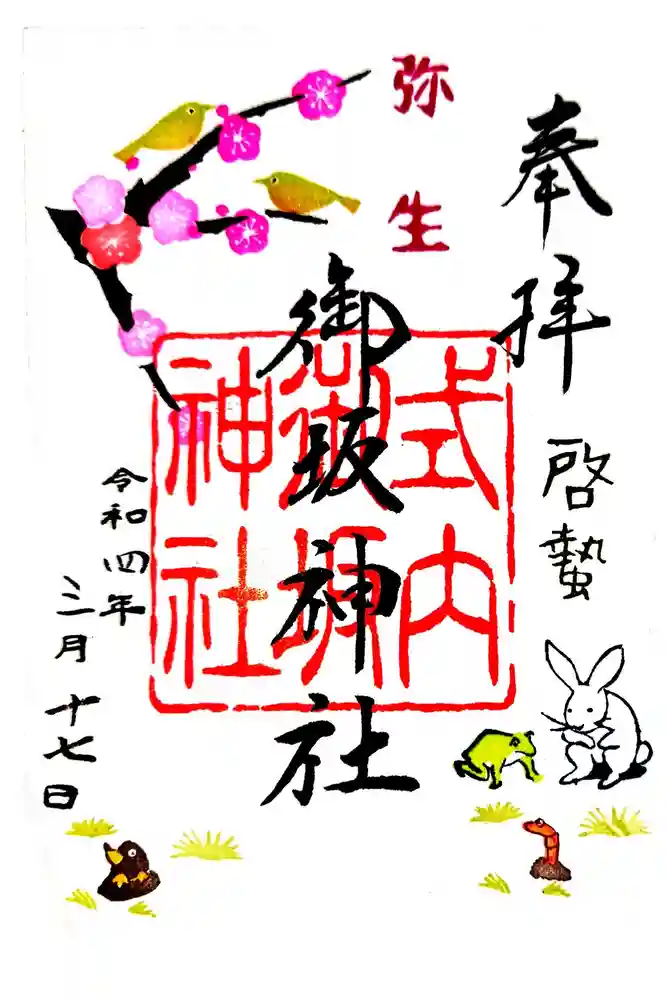 奉拝
啓蟄
弥生
御坂神社
式内
御坂
神社
令和四年
三月十七日